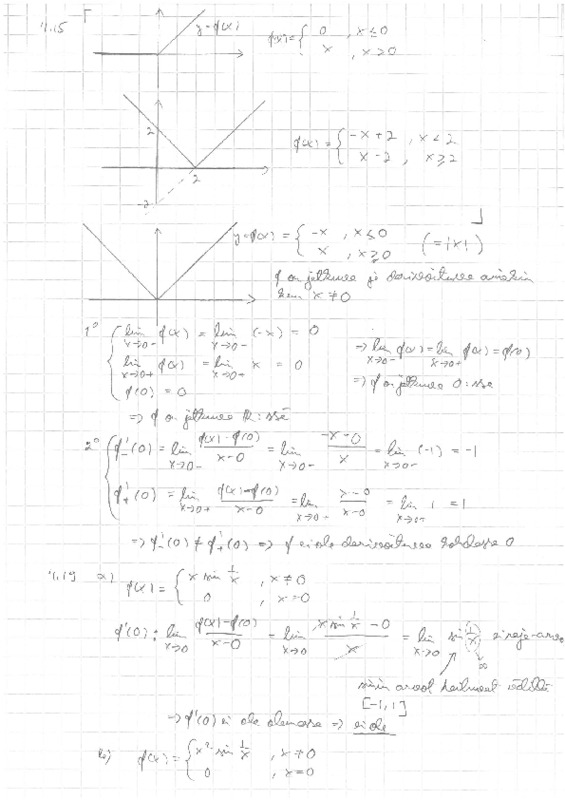 4.15
y=f(x)
f(x)={ 0 , x≤0
x , x>0
2
2
-2
f(x)={ -x+2 , x<2
x-2 , x≥2
y=f(x)={ -x , x≤0
x , x≥0 (=|x|)
f on jatkuva ja derivoituva ainakin
kun x≠0
1° lim x→0- f(x) = lim x→0- (-x) = 0
lim x→0+ f(x) = lim x→0+ x = 0
f(0) = 0
⇒ lim x→0- f(x) = lim x→0+ f(x) = f(0)
⇒ f on jatkuva 0:ssa
⇒ f on jatkuva R:ssä
2° f'-(0) = lim x→0- (f(x)-f(0))/(x-0) = lim x→0- (-x-0)/x = lim x→0- (-1) = -1
f'+(0) = lim x→0+ (f(x)-f(0))/(x-0) = lim x→0+ (x-0)/(x-0) = lim x→0+ 1 = 1
⇒ f'-(0) ≠ f'+(0) ⇒ f ei ole derivoituva kohdassa 0
4.19 a) f(x) = { x sin 1/x , x≠0
0 , x=0
f'(0): lim x→0 (f(x)-f(0))/(x-0) = lim x→0 (x sin 1/x - 0)/x = lim x→0 sin 1/x ei raja-arvoa
∞
sinin arvot väliltä
[-1,1]
⇒ f'(0) ei ole olemassa ⇒ ei ole
b) f(x) = { x² sin 1/x , x≠0
0 , x=0